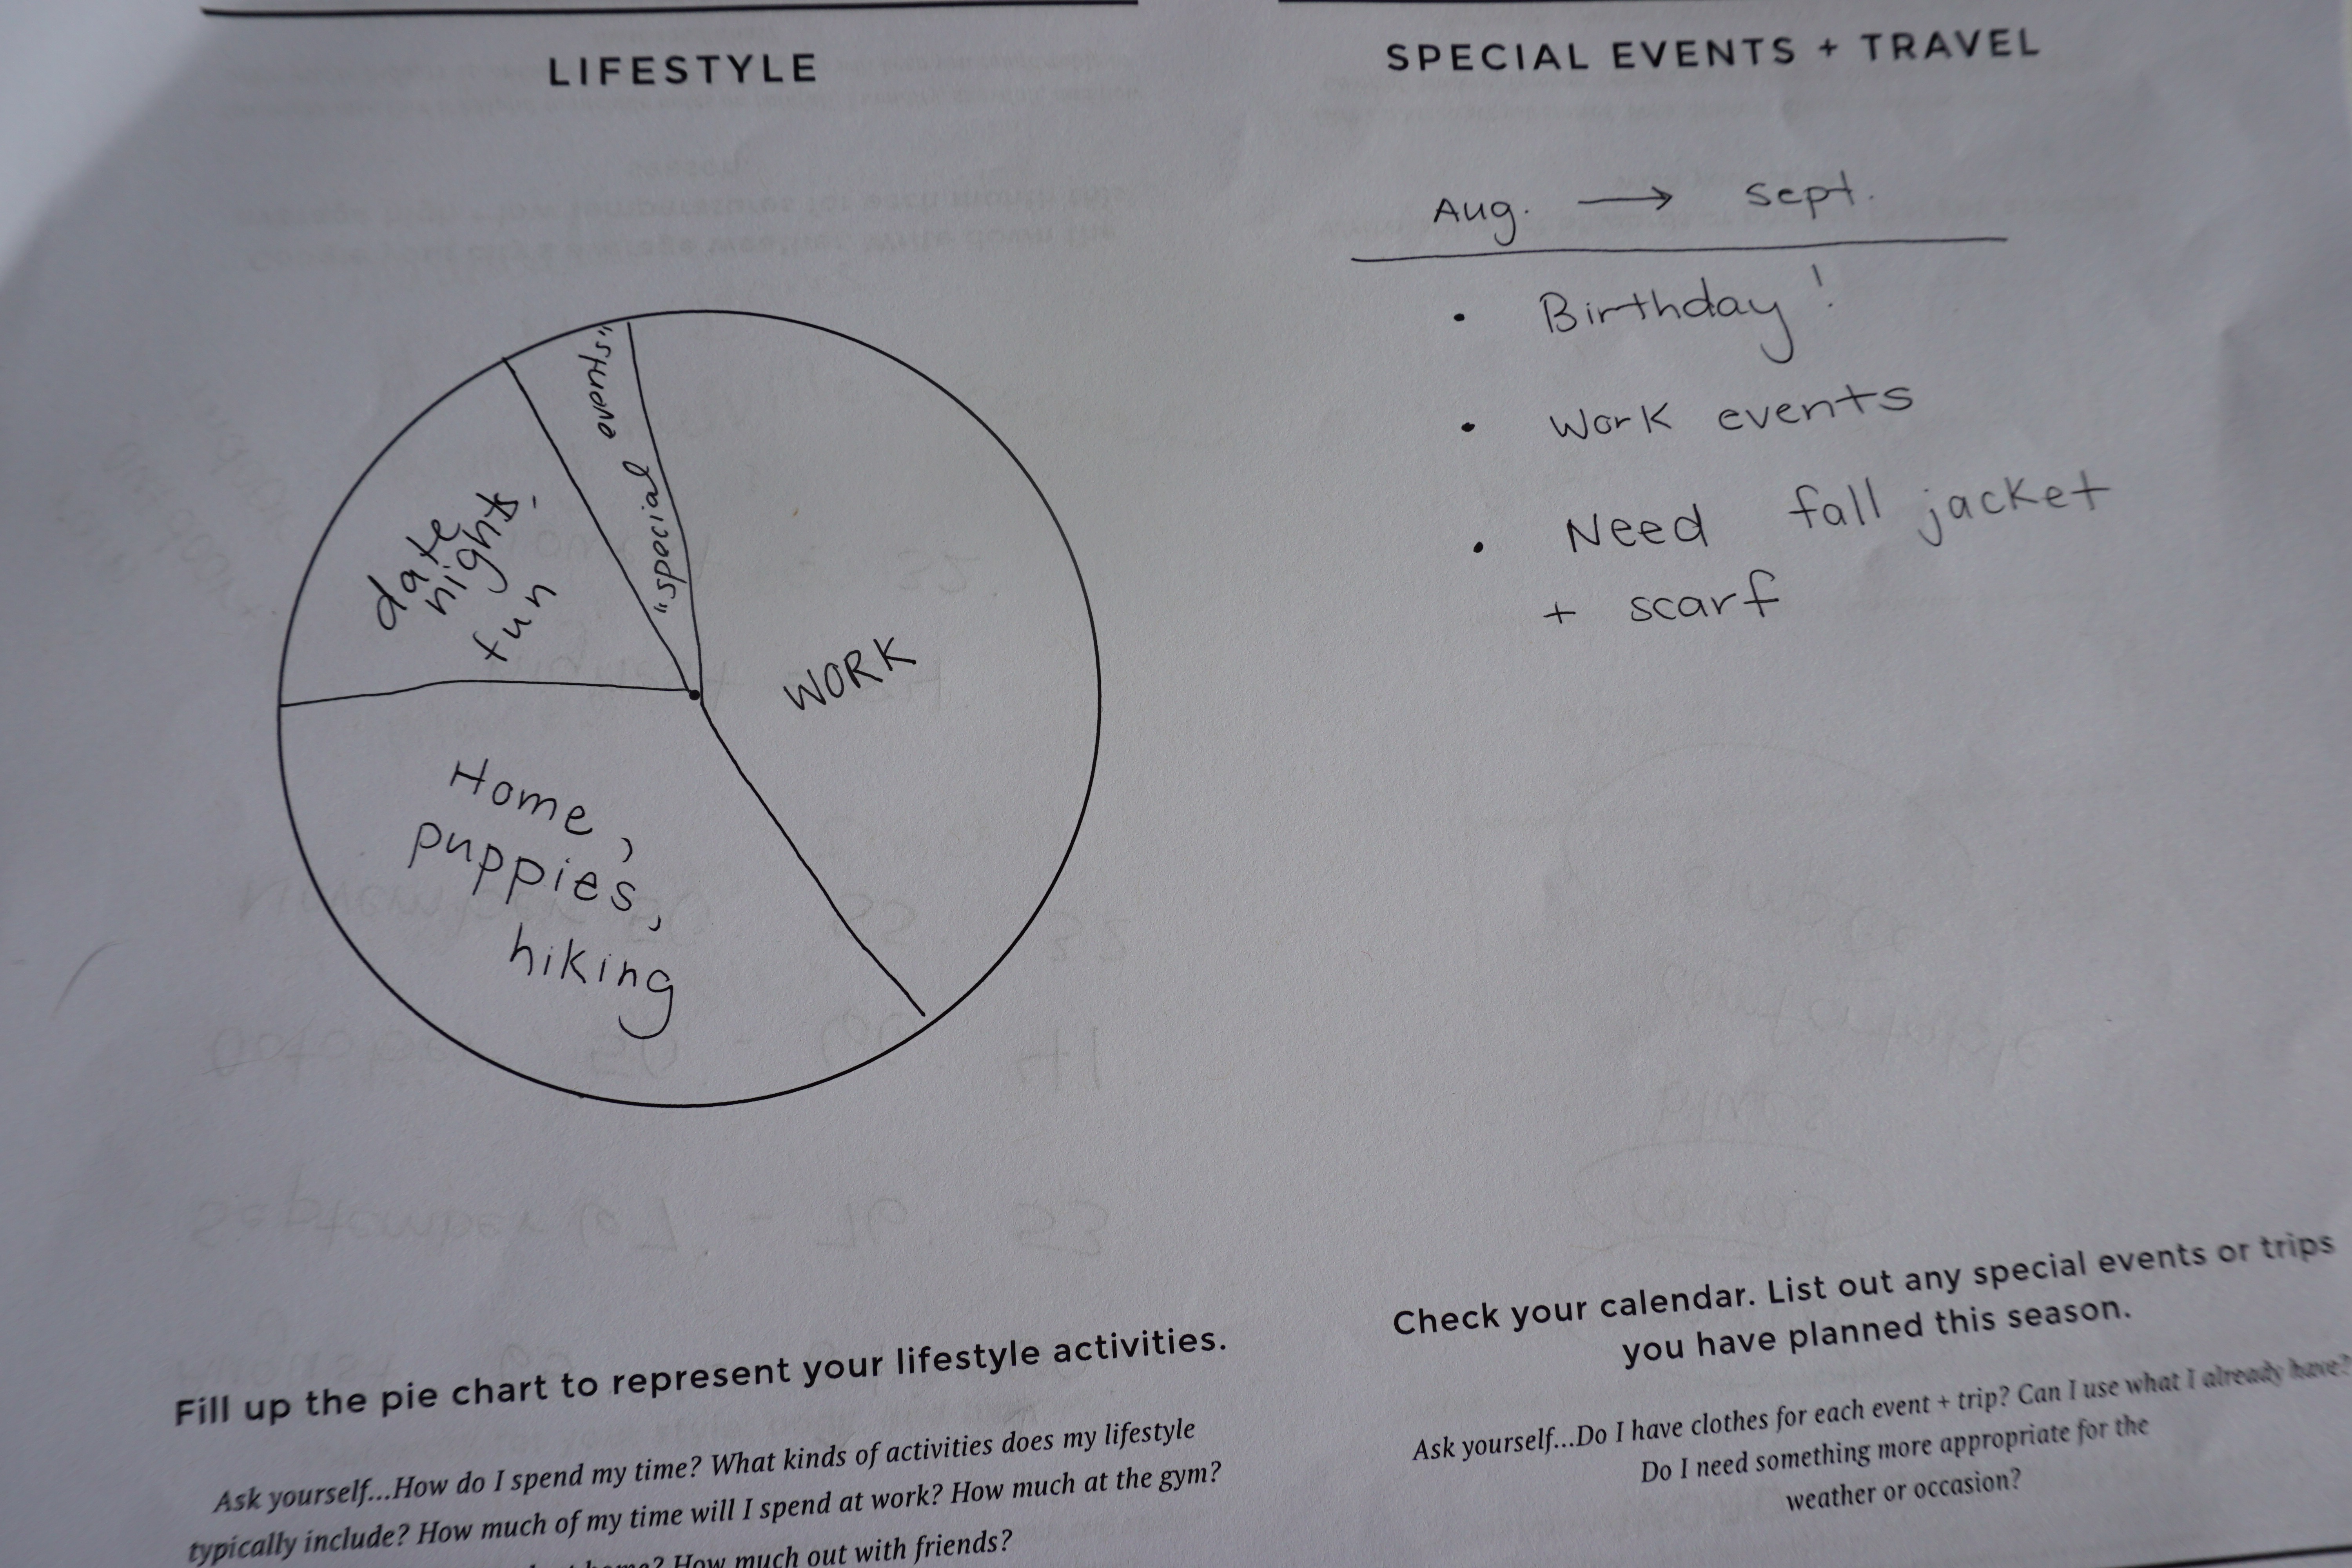 LIFESTYLE
"special events"
date
nights.
+ fun
WORK
Home,
puppies,
hiking
Fill up the pie chart to represent your lifestyle activities.
Ask yourself...How do I spend my time? What kinds of activities does my lifestyle
typically include? How much of my time will I spend at work? How much at the gym?
home? How much out with friends?
SPECIAL EVENTS + TRAVEL
Aug. → Sept.
• Birthday!
• Work events
• Need fall jacket
+ scarf
Check your calendar. List out any special events or trips
you have planned this season.
Ask yourself...Do I have clothes for each event + trip? Can I use what I already have?
Do I need something more appropriate for the
weather or occasion?